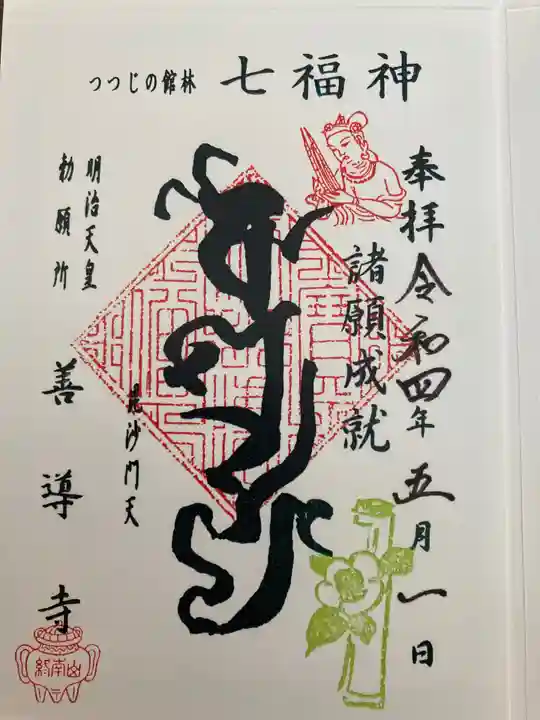 つつじの館林 七福神
奉拝 令和四年 五月 一日
諸願成就
毘沙門天
明治天皇
勅願所
善導寺
終南山